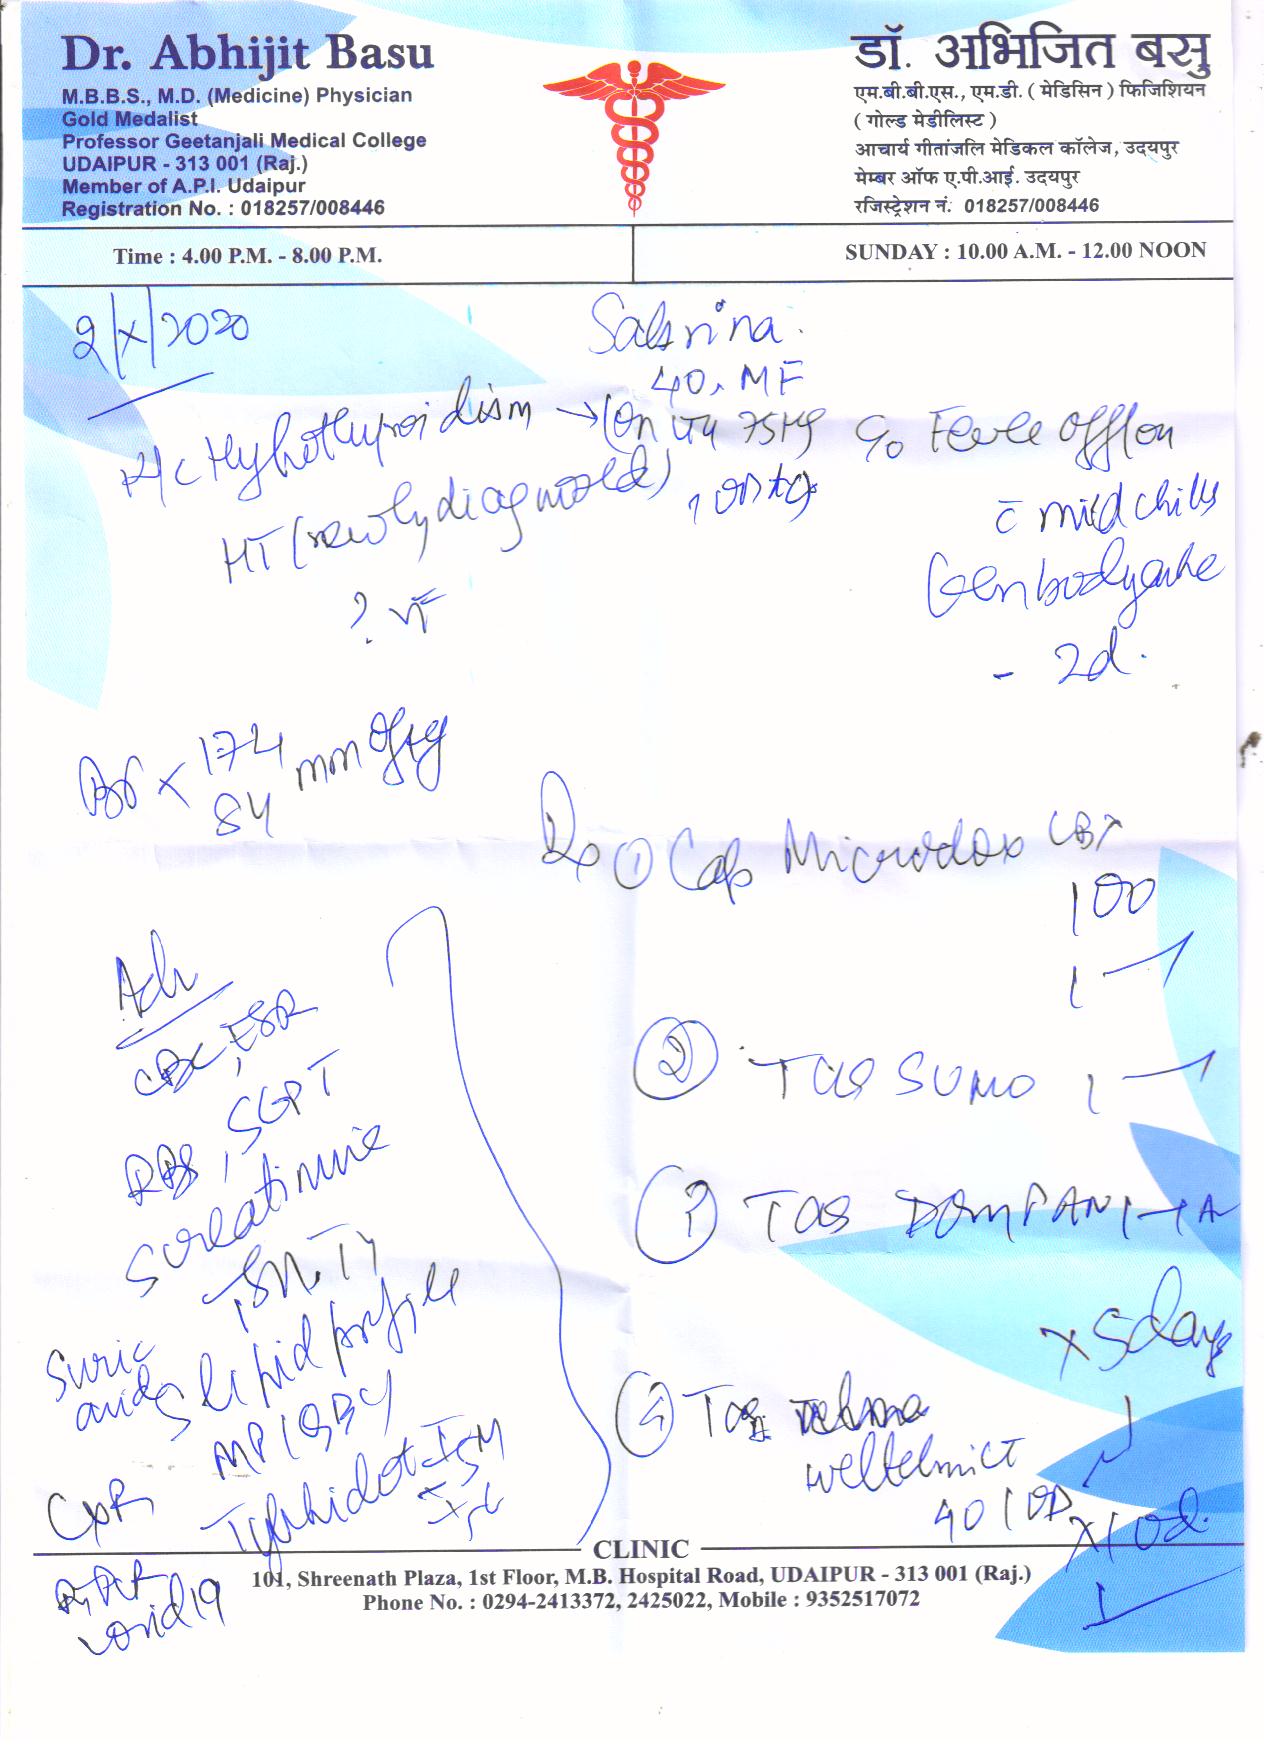 Dr. Abhijit Basu
M.B.B.S., M.D. (Medicine) Physician
Gold Medalist
Professor Geetanjali Medical College
UDAIPUR - 313 001 (Raj.)
Member of A.P.I. Udaipur
Registration No. : 018257/008446
डॉ. अभिजित बसु
एम.बी.बी.एस., एम.डी. ( मेडिसिन ) फिजिशियन
( गोल्ड मेडीलिस्ट )
आचार्य गीतांजलि मेडिकल कॉलेज, उदयपुर
मेम्बर ऑफ ए.पी.आई. उदयपुर
रजिस्ट्रेशन नं. 018257/008446
Time : 4.00 P.M. - 8.00 P.M.
SUNDAY : 10.00 A.M. - 12.00 NOON
2/X/2020
Sabrina
40. MF
K/c Hypothyroidism → (On 75
HT (newly diagnosed)
? VF
C/o Fever off/on
c̄ mild chills
Gen bodyache
- 2d.
174
84 mm of Hg
Rx ① Cap Microdox LBX
100
1 —
② Tab SUMO 1 —
Tab DOMPAN 1 —
x 5days
④ Tab
40 1 OD
x 10d.
Adv
CBC, ESR
RBS, SGPT
S creatinine
TSH, T4
S uric
acid, S lipid profile
MP/QBC
Typhidot IgM
CXR
covid 19
CLINIC
101, Shreenath Plaza, 1st Floor, M.B. Hospital Road, UDAIPUR - 313 001 (Raj.)
Phone No. : 0294-2413372, 2425022, Mobile : 9352517072